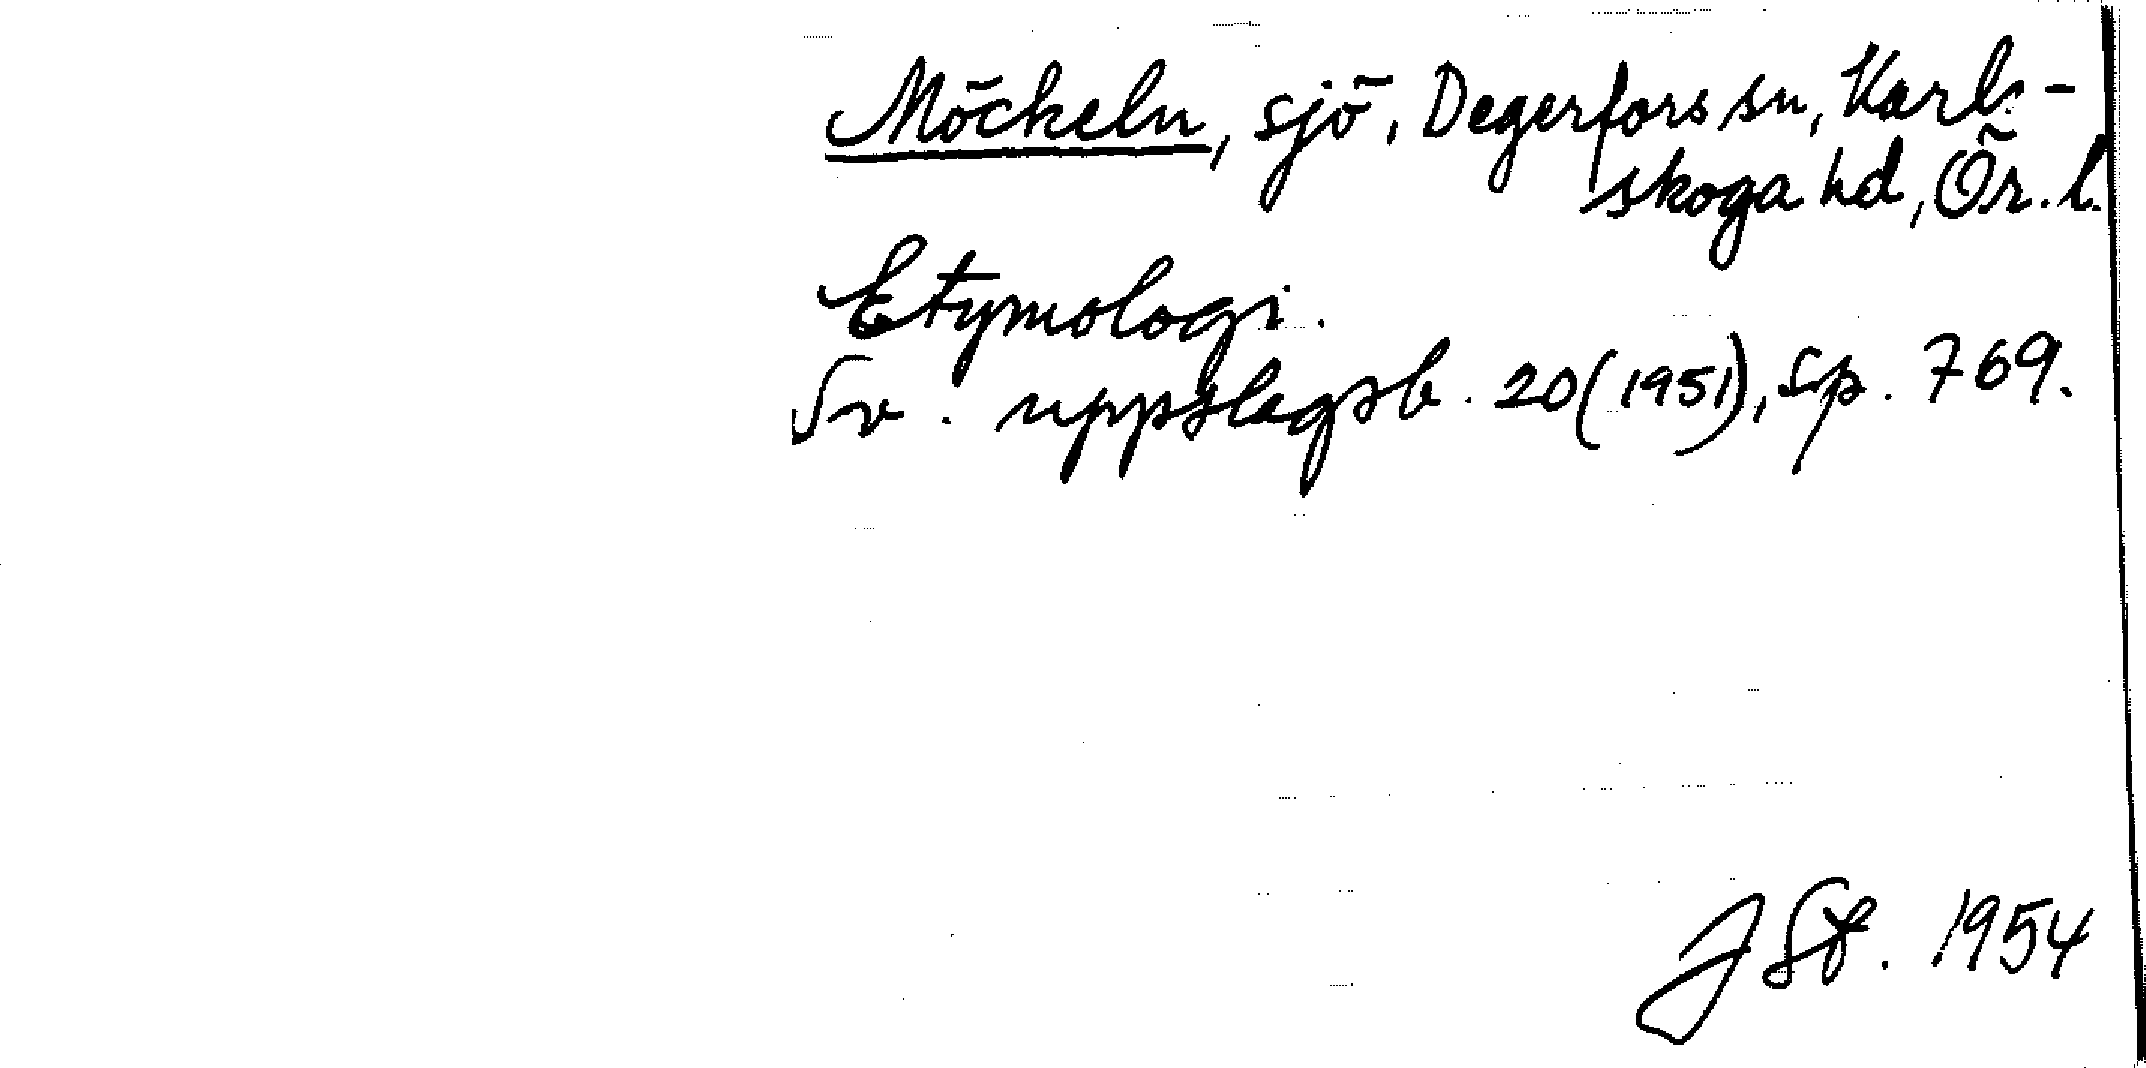 Möckeln, sjö, Degerfors sn, Karls-
skoga hd, Ör. l.
Etymologi.
Sv. uppslagsb. 20 (1951), sp. 769.
1954